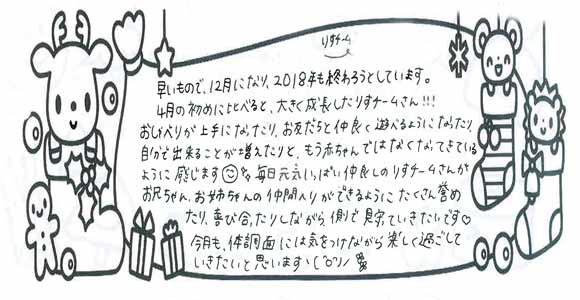 りすチーム
早いもので、12月になり、2018年も終わろうとしています。
4月の初めに比べると、大きく成長したりすチームさん!!!
おしゃべりが上手になったり、お友だちと仲良く遊べるようになったり、
自分で出来ることが増えたりと、もう赤ちゃんではなくなってきている
ように感じます 毎日元気いっぱい仲良しのりすチームさんが
お兄ちゃん、お姉ちゃんの仲間入りができるようにたくさん誉め
たり、喜び合ったりしながら側で見守っていきたいです♡
今月も、体調面には気をつけながら楽しく過ごして
いきたいと思いますヽ(^o^)丿